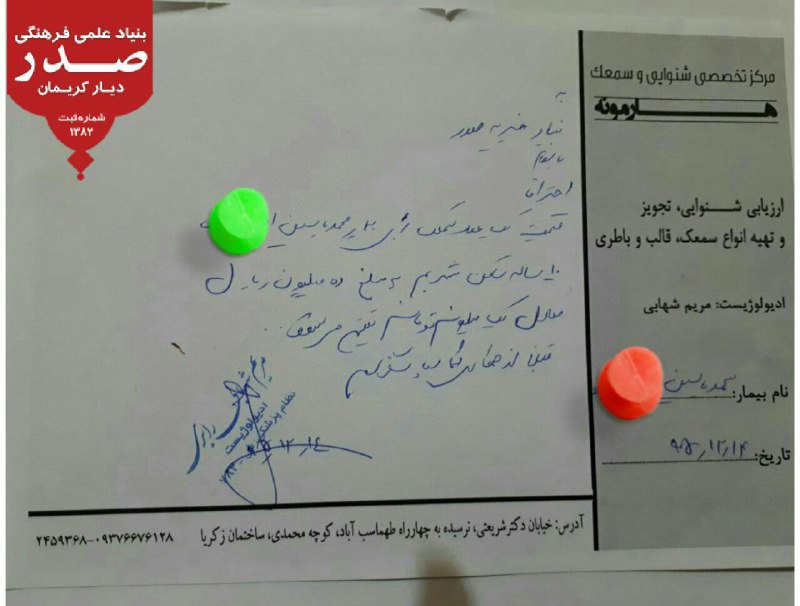 بنیاد علمی فرهنگی
صدر
دیار کریمان
شماره ثبت
۱۳۸۲
مرکز تخصصی شنوایی و سمعک
هارمونه
ارزیابی شنوایی، تجویز
و تهیه انواع سمعک، قالب و باطری
ادیولوژیست: مریم شهابی
نام بیمار:
تاریخ: ۹۵/۱۲/۱۴
به
بنیاد خیریه صدر
با سلام
احتراما
قیمت یک عدد سمعک برای محمد یاسین
۱۰ ساله ساکن به مبلغ ده میلیون ریال
معادل یک میلیون تومان تعیین می شود
قبلا از همکاری شما سپاسگزارم
مریم شهابی
ادیولوژیست
نظام پزشکی
۹۵/۱۲/۱۴
آدرس: خیابان دکتر شریعتی، نرسیده به چهارراه طهماسب آباد، کوچه محمدی، ساختمان زکریا ۰۹۳۷۶۶۷۶۱۲۸-۲۴۵۹۳۶۸